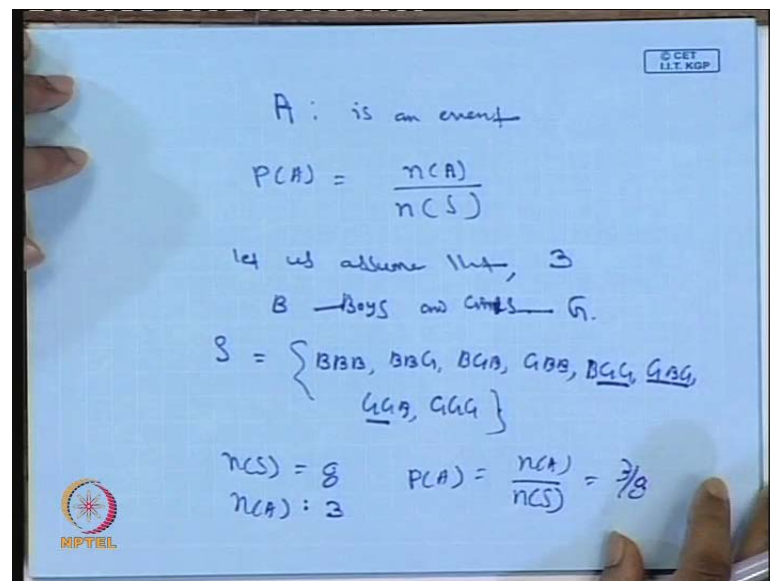 © CET
I.I.T. KGP
A : is an event
P(A) = n(A) / n(S)
let us assume that, 3
B — Boys and Girls — G.
S = { BBB, BBG, BGB, GBB, BGG, GBG,
GGB, GGG }
n(S) = 8 P(A) = n(A) / n(S) = 3/8
n(A) : 3
NPTEL